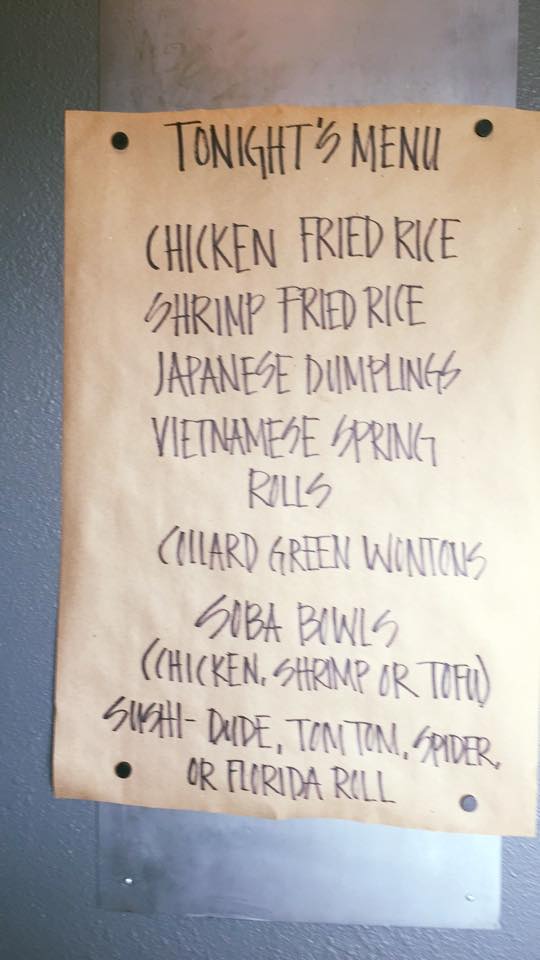 TONIGHT'S MENU
CHICKEN FRIED RICE
SHRIMP FRIED RICE
JAPANESE DUMPLINGS
VIETNAMESE SPRING
ROLLS
COLLARD GREEN WONTONS
SOBA BOWLS
(CHICKEN, SHRIMP OR TOFU)
SUSHI- DUDE, TOM TOM, SPIDER,
OR FLORIDA ROLL